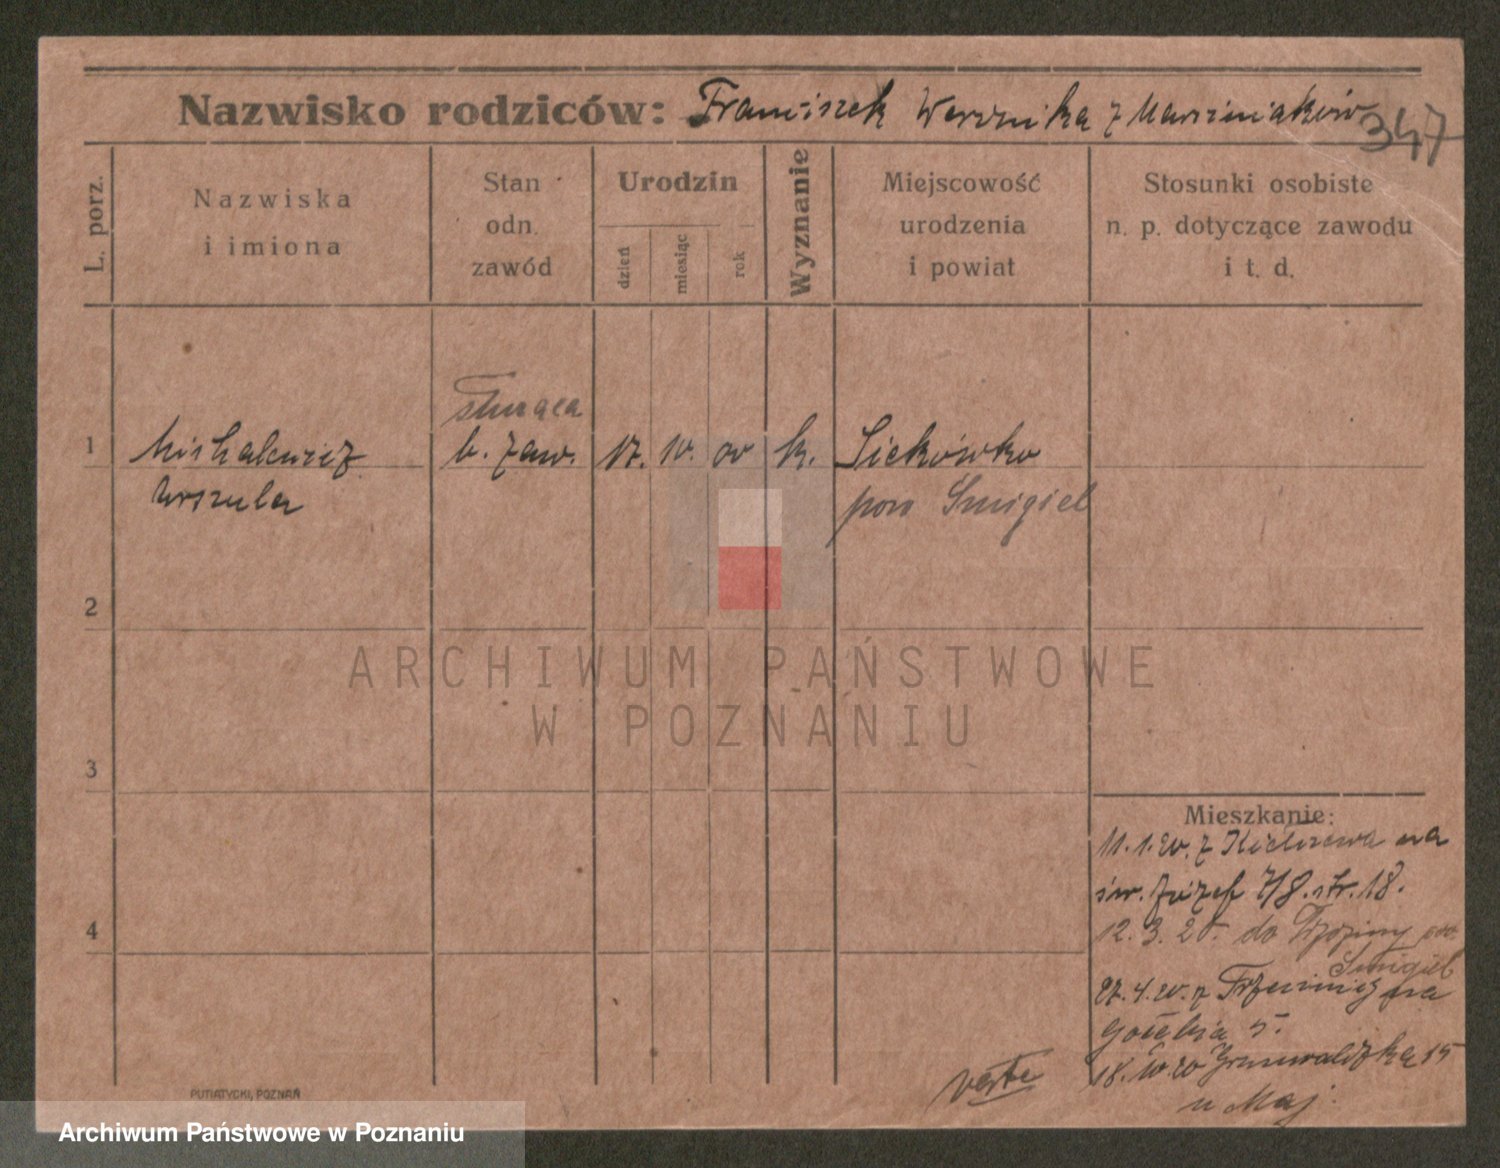 Nazwisko rodziców: Franciszek Weronika z Marciniaków
347
L. porz.
Nazwiska
i imiona
Stan
odn.
zawód
Urodzin
dzień
miesiąc
rok
Wyznanie
Miejscowość
urodzenia
i powiat
Stosunki osobiste
n. p. dotyczące zawodu
i t. d.
służąca
1 Michalewicz b. zaw. 17. 10. 00 k. Siekówko
Urszula pow Smigiel
2
ARCHIWUM PAŃSTWOWE
W POZNANIU
3
Mieszkanie:
11. 1. 20. z na
św. Józef 7/8. str. 18.
4
12. 3. 20. do
Smigiel
27. 4. 20. z na
Gołębia 5.
18. 10. 20 Grunwaldzka 15
u Maj.
verte
PUTIATYCKI, POZNAŃ
Archiwum Państwowe w Poznaniu